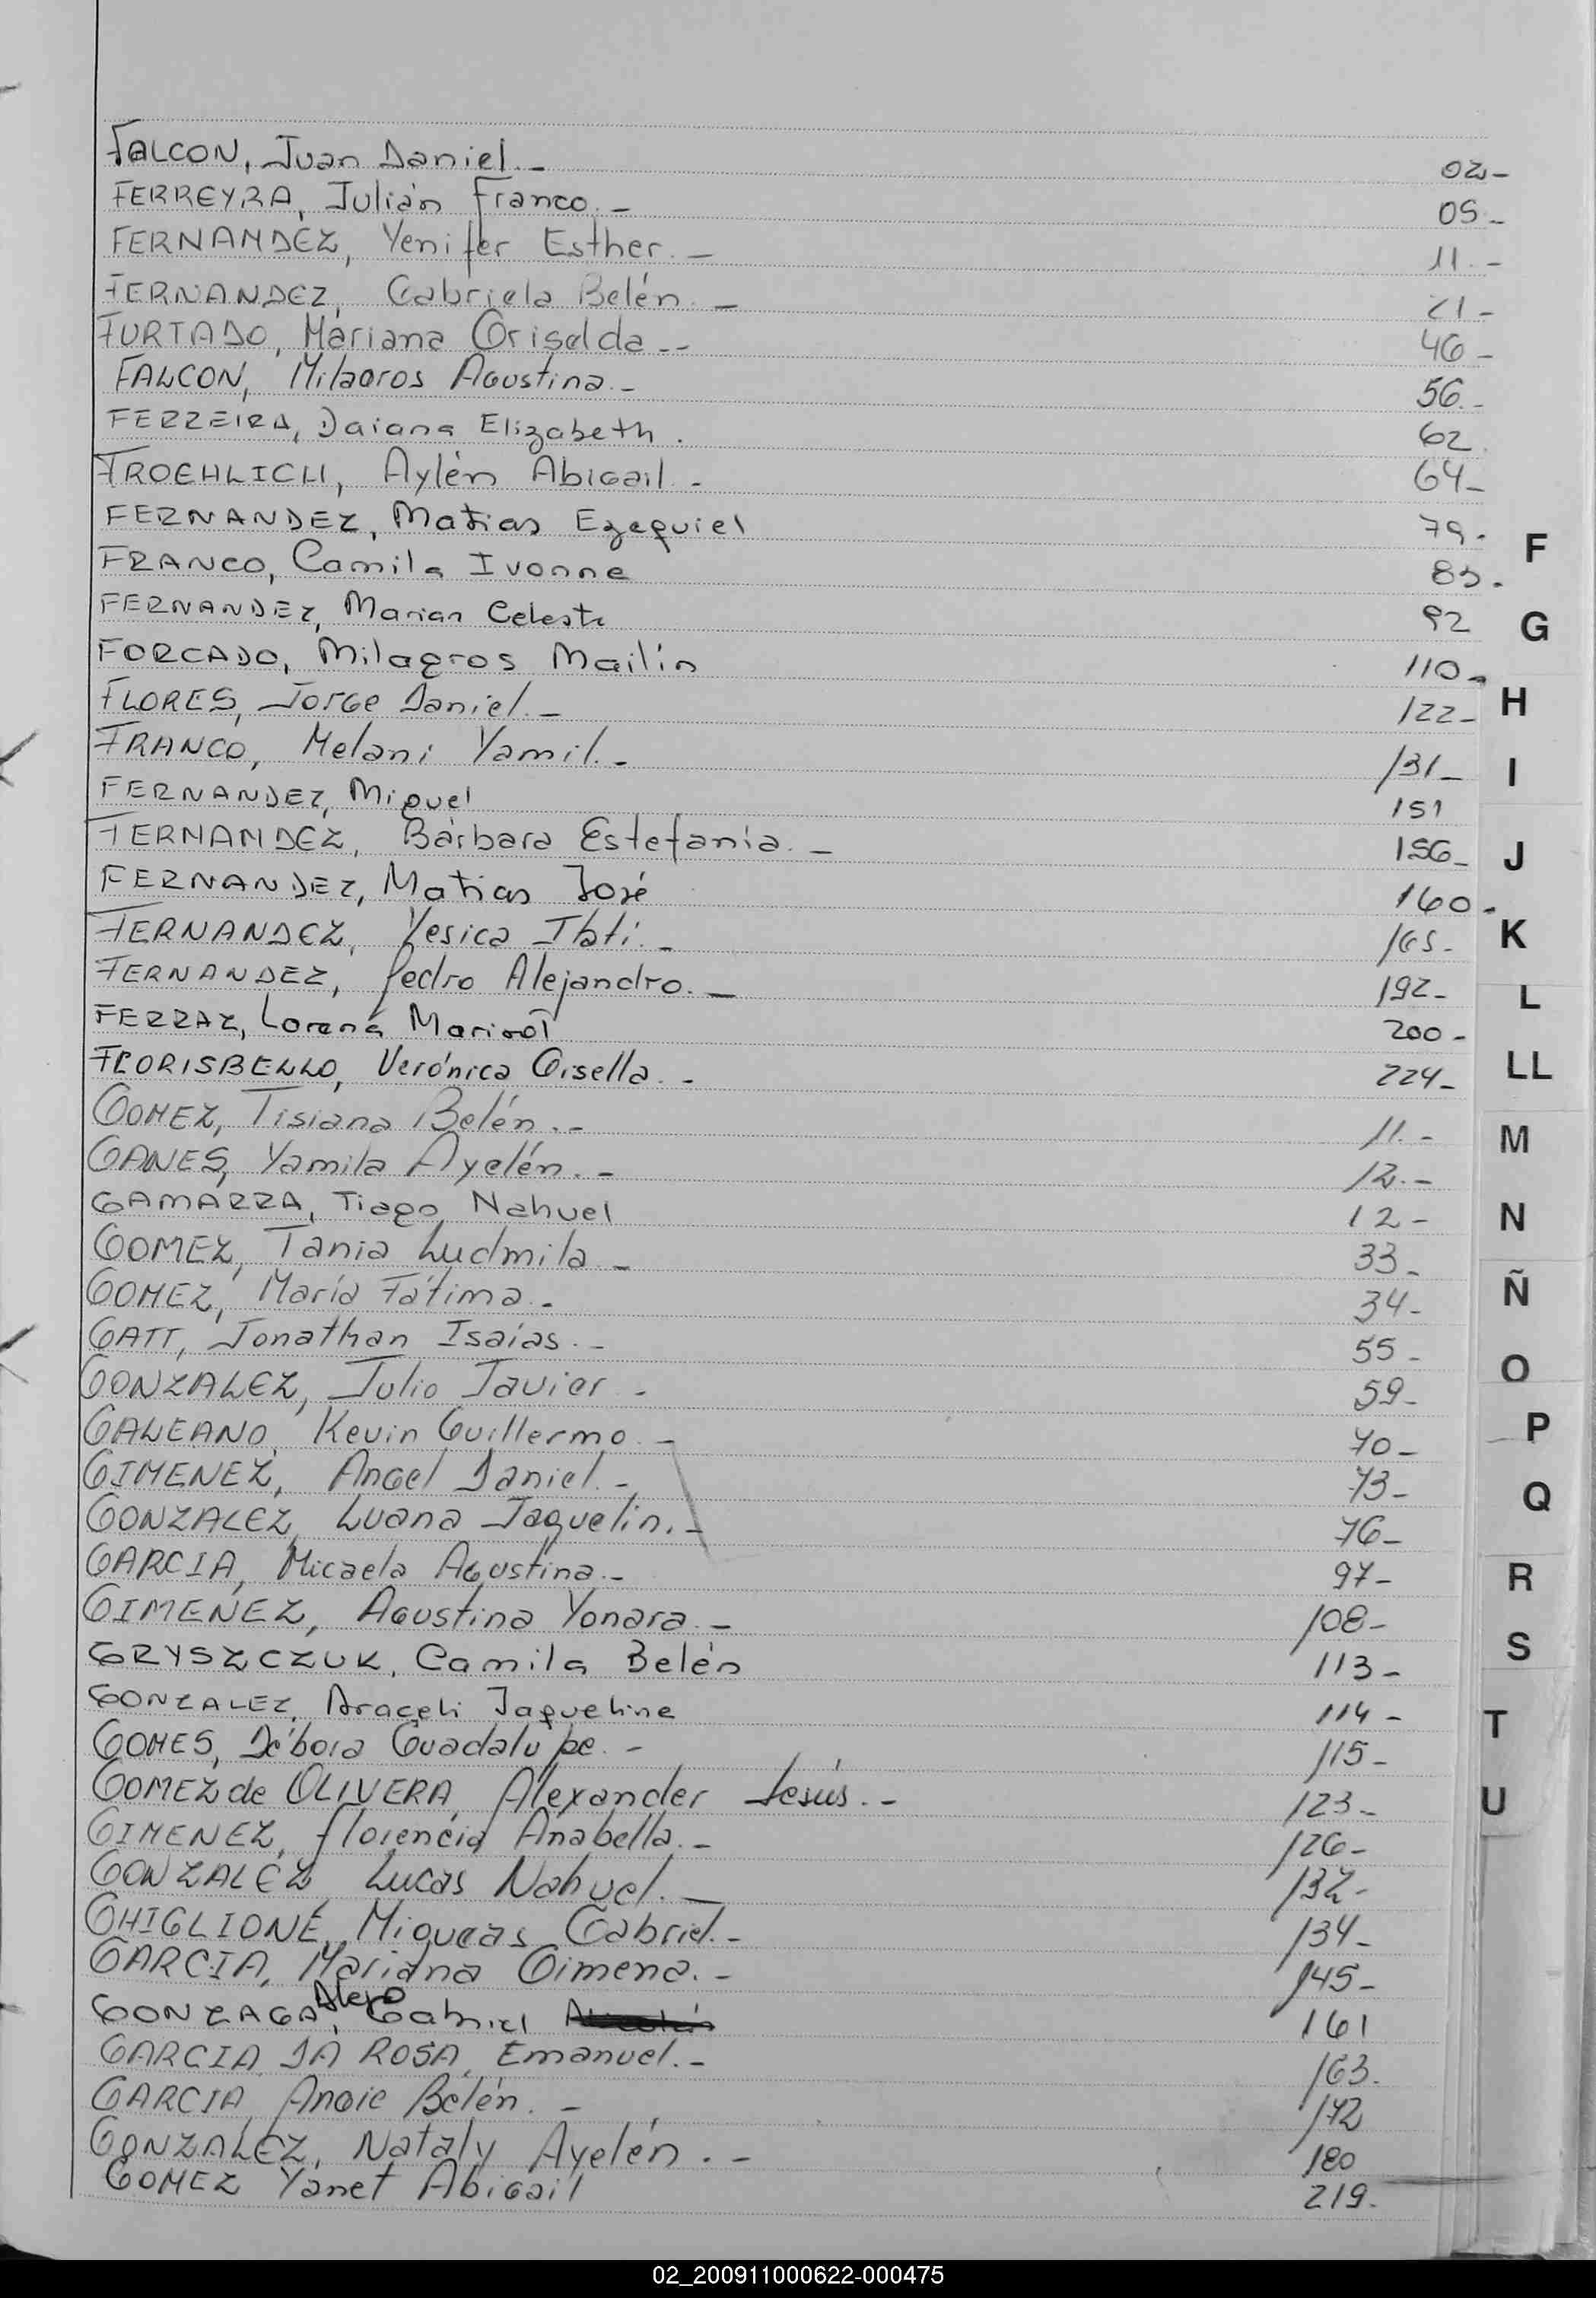 FALCON, Juan Daniel.- 02-
FERREYRA, Julián Franco.- 05.-
FERNANDEZ, Yenifer Esther.- 11.-
FERNANDEZ, Gabriela Belén.- 21-
FURTADO, Mariana Griselda.-- 46-
FALCON, Milagros Agustina.- 56.-
FERREIRA, Daiana Elizabeth. 62.
FROEHLICH, Aylén Abigail.- 64-
FERNANDEZ, Matias Ezequiel 79.-
FRANCO, Camila Ivonne 85.
FERNANDEZ, Marian Celeste 92
FORCADO, Milagros Mailín 110-
FLORES, Jorge Daniel.- 122-
FRANCO, Melani Yamil.- 131-
FERNANDEZ, Miguel 151
FERNANDEZ, Bárbara Estefanía.- 156-
FERNANDEZ, Matias José 160-
FERNANDEZ, Yesica Itatí.- 165-
FERNANDEZ, Pedro Alejandro.- 192-
FERRAZ, Lorena Marisol 200-
FLORISBELLO, Verónica Gisella.- 224-
GOMEZ, Tisiana Belén.- 11.-
GANES, Yamila Ayelén.- 12.-
GAMARRA, Tiago Nahuel 12-
GOMEZ, Tania Ludmila.- 33-
GOMEZ, María Fátima.- 34-
GATT, Jonathan Isaías.- 55-
GONZALEZ, Julio Javier.- 59-
GALEANO, Kevin Guillermo.- 70-
GIMENEZ, Angel Daniel.- 73-
GONZALEZ, Luana Jaquelin.- 76-
GARCIA, Micaela Agustina.- 97-
GIMENEZ, Agustina Yonara.- 108-
GRYSZCZUK, Camila Belén 113-
GONZALEZ, Araceli Jaqueline 114-
GOMES, Débora Guadalupe.- 115-
GOMEZ de OLIVERA, Alexander Jesús.- 123-
GIMENEZ, Florencia Anabella.- 126-
GONZALEZ, Lucas Nahuel.- 132-
GHIGLIONE, Miqueas Gabriel.- 134-
GARCIA, Mariana Gimena.- 145-
GONZAGA, Alexo Gabriel 161
GARCIA DA ROSA, Emanuel.- 163.
GARCIA, Angie Belén.- 172
GONZALEZ, Nataly Ayelén.- 180
GOMEZ Yanet Abigail 219.
F
G
H
I
J
K
L
LL
M
N
Ñ
O
P
Q
R
S
T
U
02_200911000622-000475